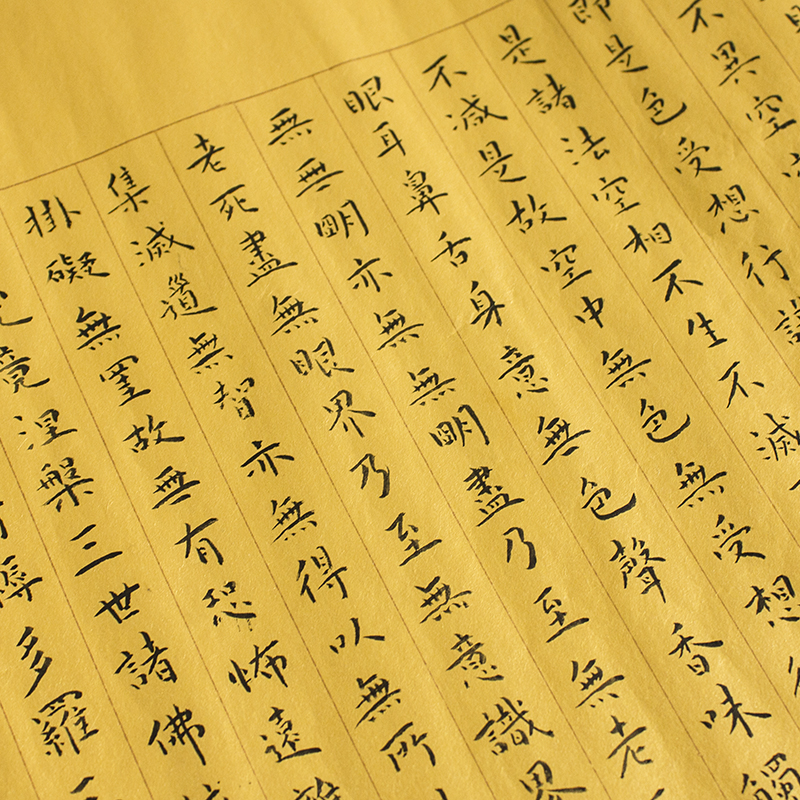 不異空
即是色受想行
是諸法空相不生不滅
不減是故空中無色無受想
眼耳鼻舌身意無色聲香味觸
無無明亦無無明盡乃至無老
老死盡無眼界乃至無意識界
集滅道無智亦無得以無所
掛礙無罣故無有恐怖遠離
竟涅槃三世諸佛
耨多羅三